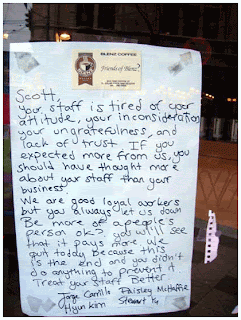 BLENZ COFFEE
Friends of Blenz
Scott,
Your staff is tired of your
attitude, your inconsideration
your ungratefulness, and
lack of trust. If you
expected more from us, you
should have thought more
about your staff than your
business
We are good loyal workers
but you always let us down
Be more of a people's
person ok? you will see
that it pays more. We
quit today because this
is the end and you didn't
do anything to prevent it
Treat your staff Better
Jorge Carrillo Paisley McHaffie
Hyun Kim Stewart